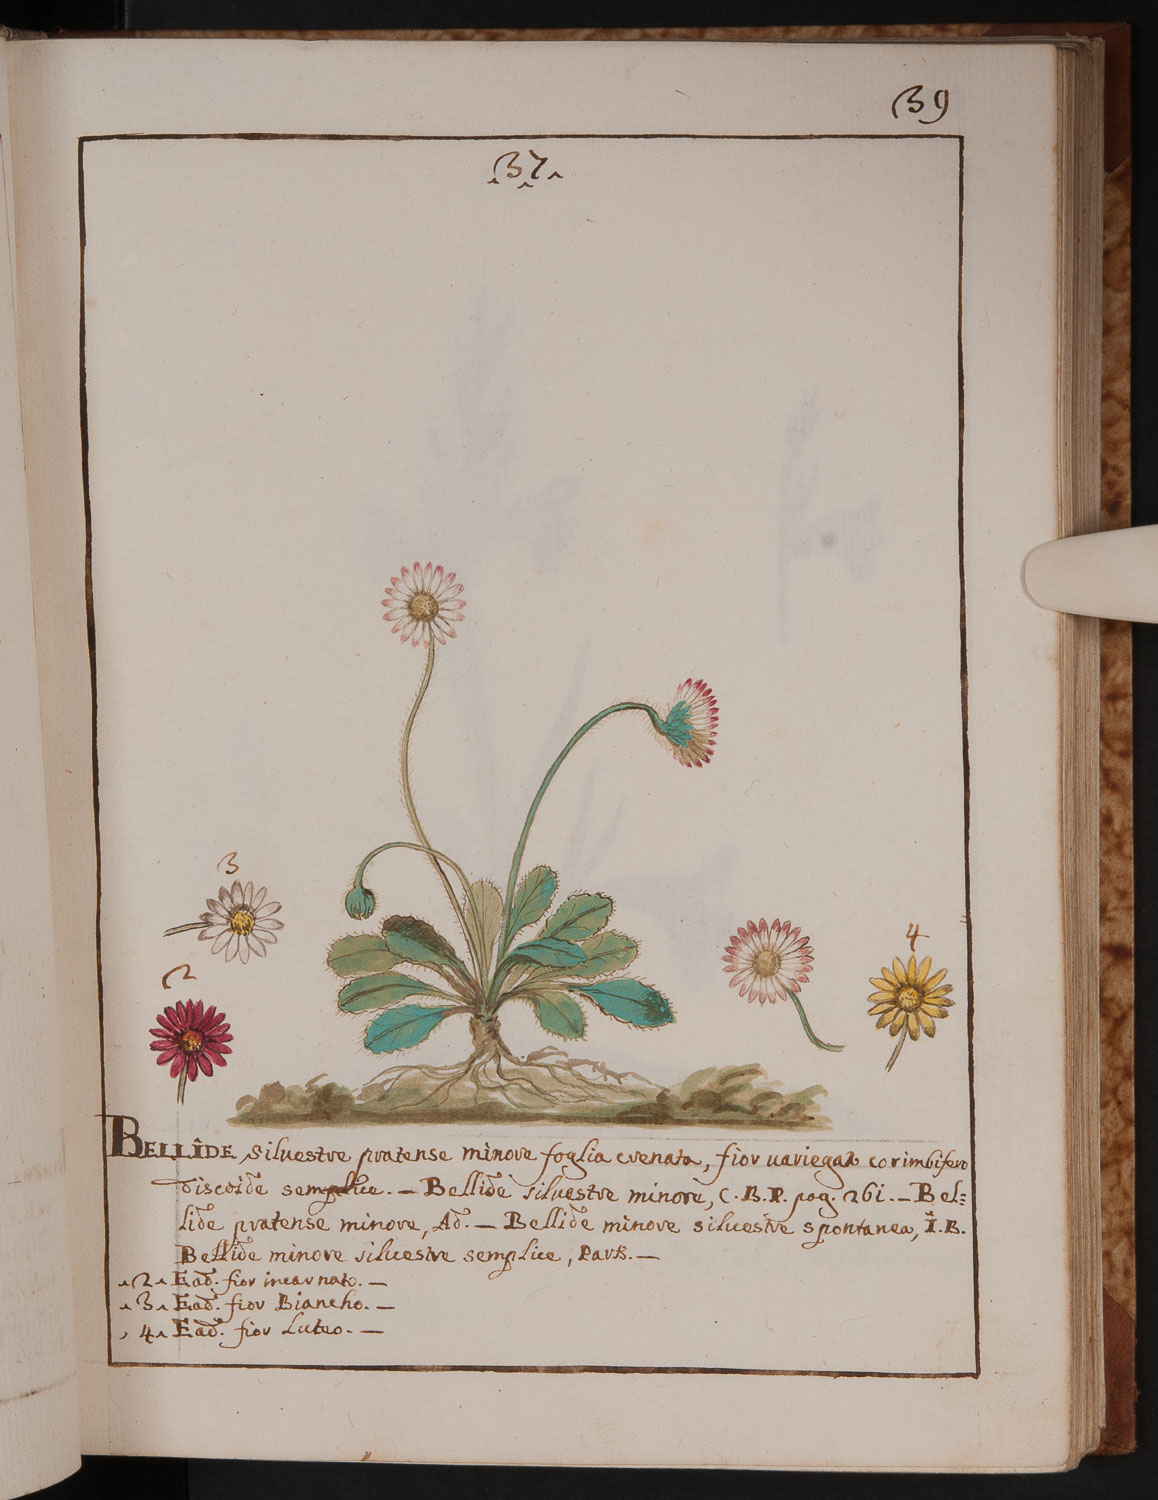 39
37
3
4
2
BELLIDE siluestre pratense minore foglia crenata, fior uariegato corimbifero
discoide semplice. — Bellide siluestre minore, C. B. P. pag. 261. — Bel=
lide pratense minore, Ad. — Bellide minore siluestre spontanea, I. B.
Bellide minore siluestre semplice, Park. —
2 Ead. fior incarnato. —
3 Ead. fior Biancho. —
4 Ead. fior Luteo. —